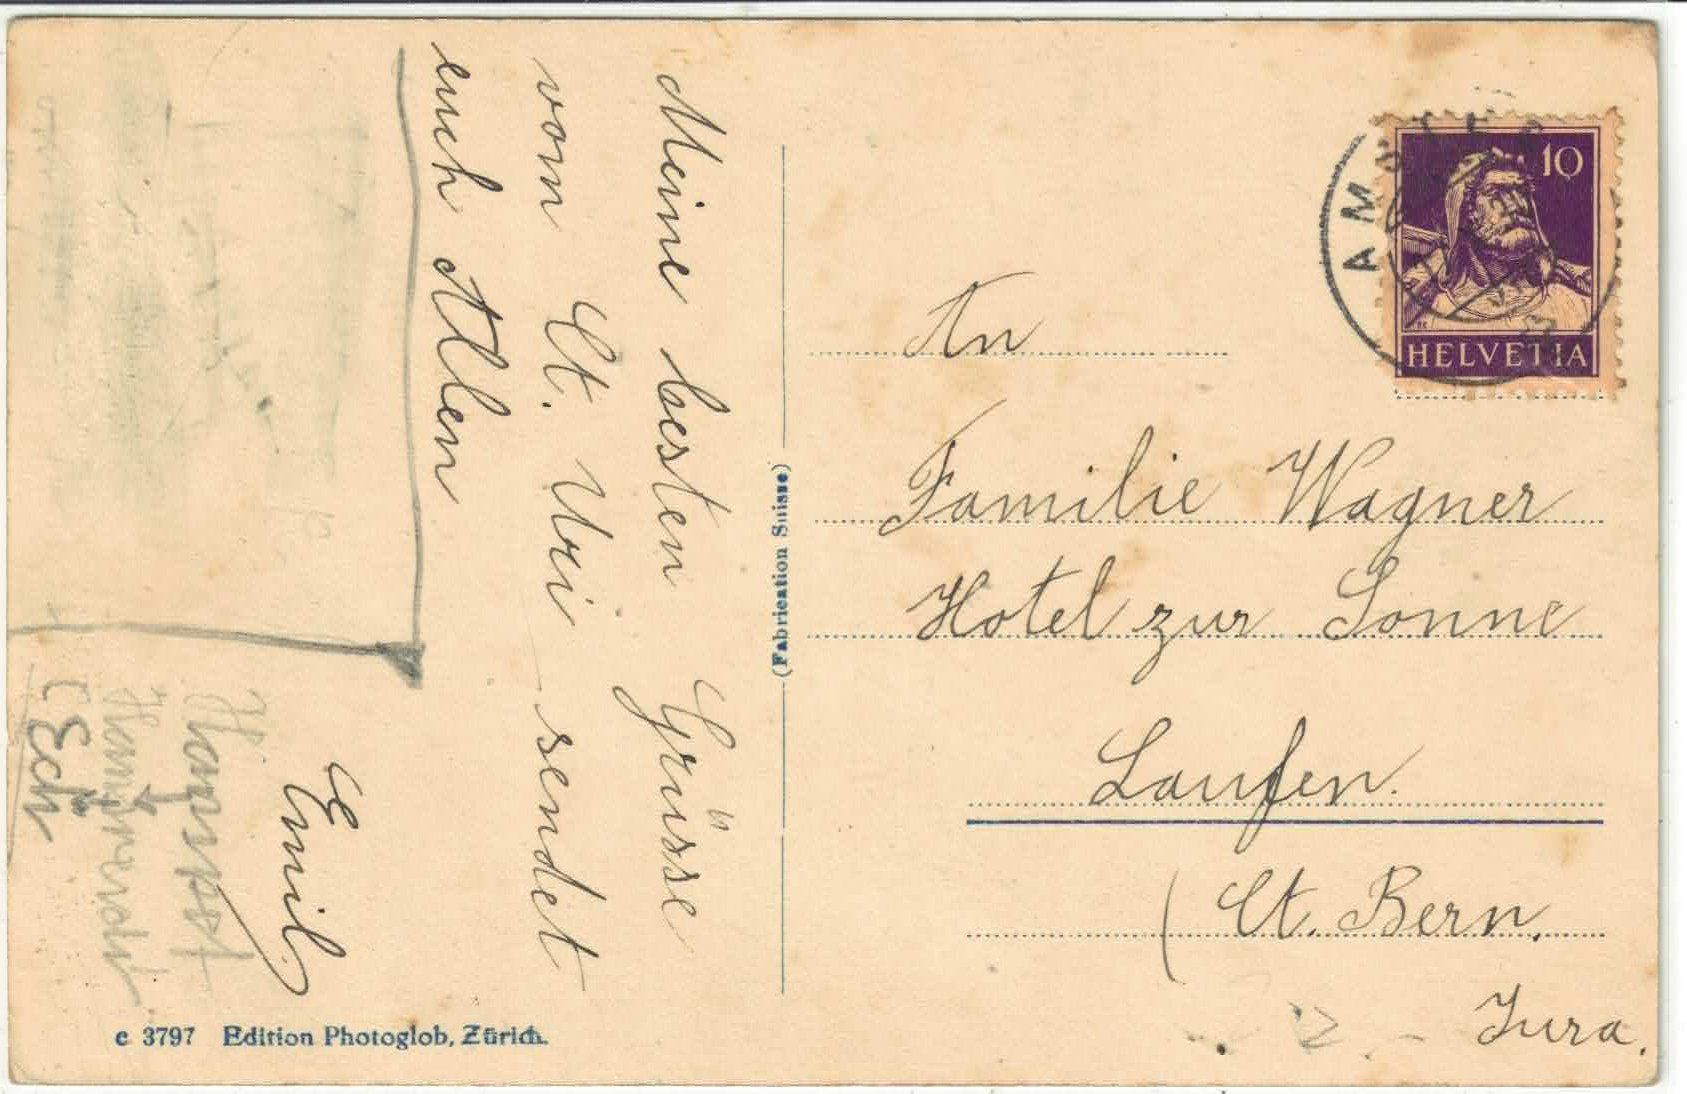 Meine besten Grüsse
vom Ct. Uri sendet
euch Allen
Emil
Haupt
(Ech
c 3797 Edition Photoglob, Zürich.
(Fabrication Suisse)
AMSTEG
10
HELVETIA
An
Familie Wagner
Hotel zur Sonne
Laufen.
(Ct. Bern.
Jura.
2.-